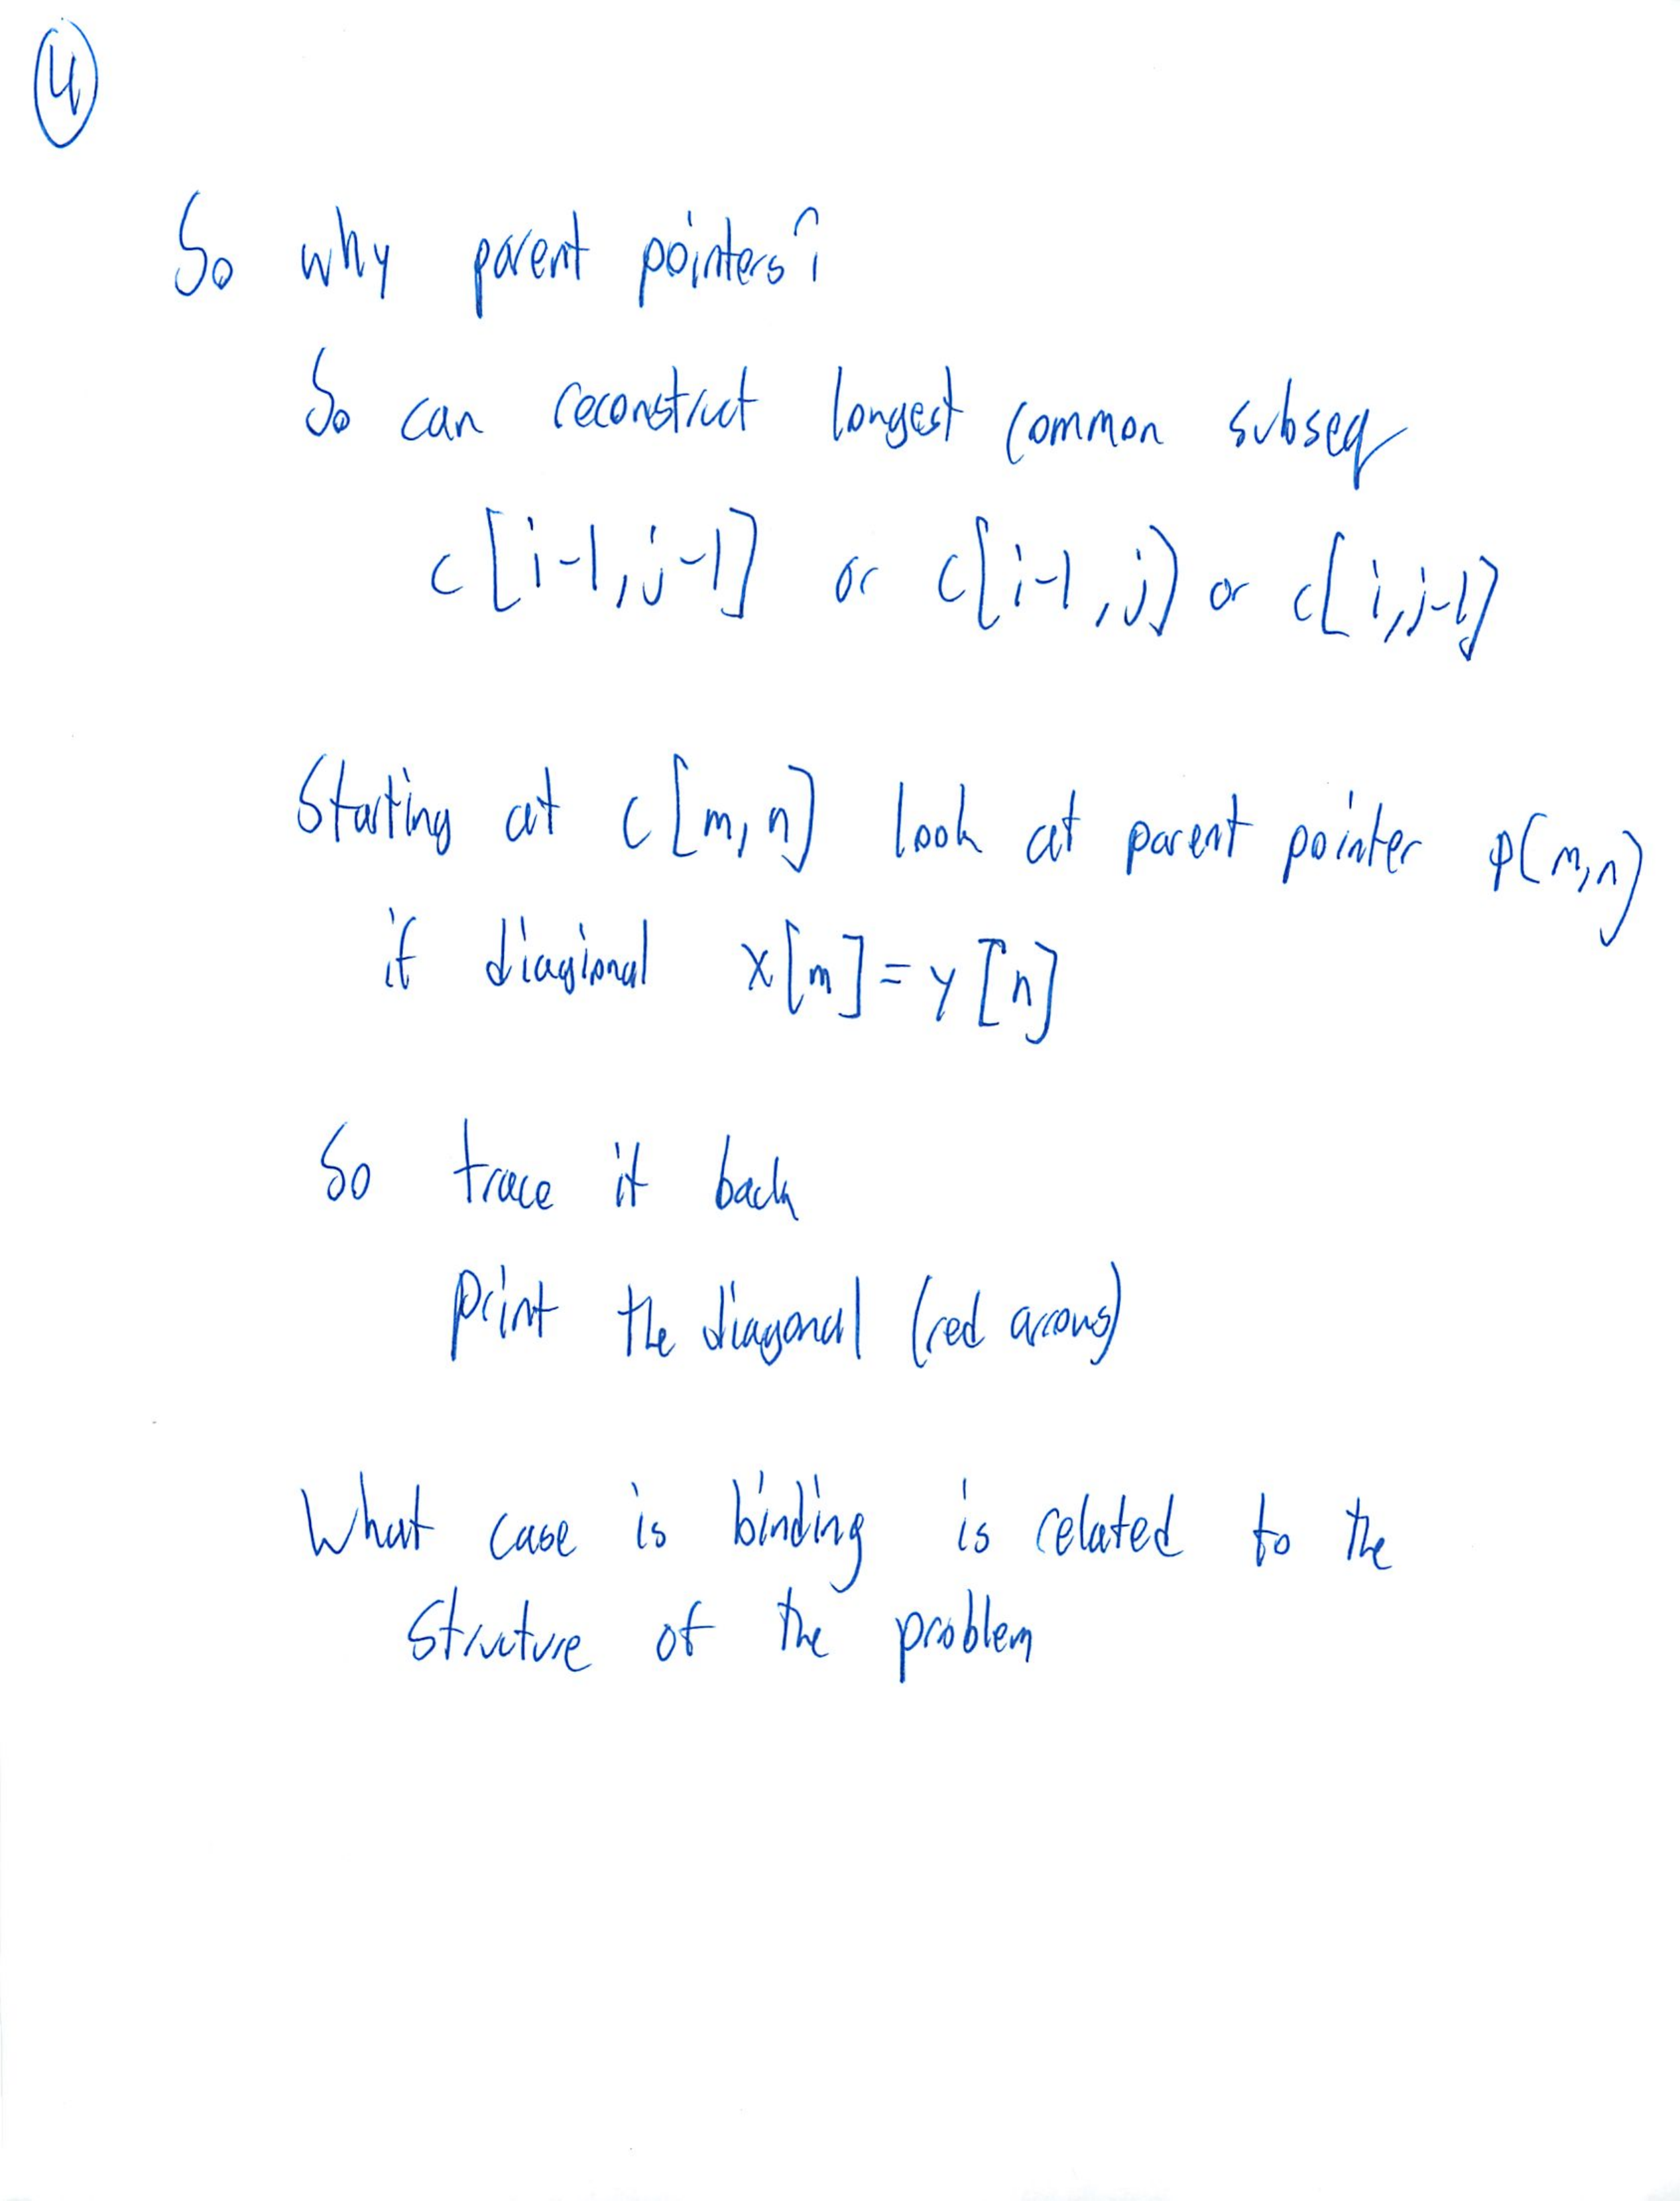 4
So why parent pointers?
So can reconstruct longest common subseq
c[i-1,j-1] or c[i-1,j] or c[i,j-1]
Starting at c[m,n] look at parent pointer p(m,n)
if diagional x[m]=y[n]
So trace it back
Print the diagonal (red arrows)
What case is binding is related to the
structure of the problem